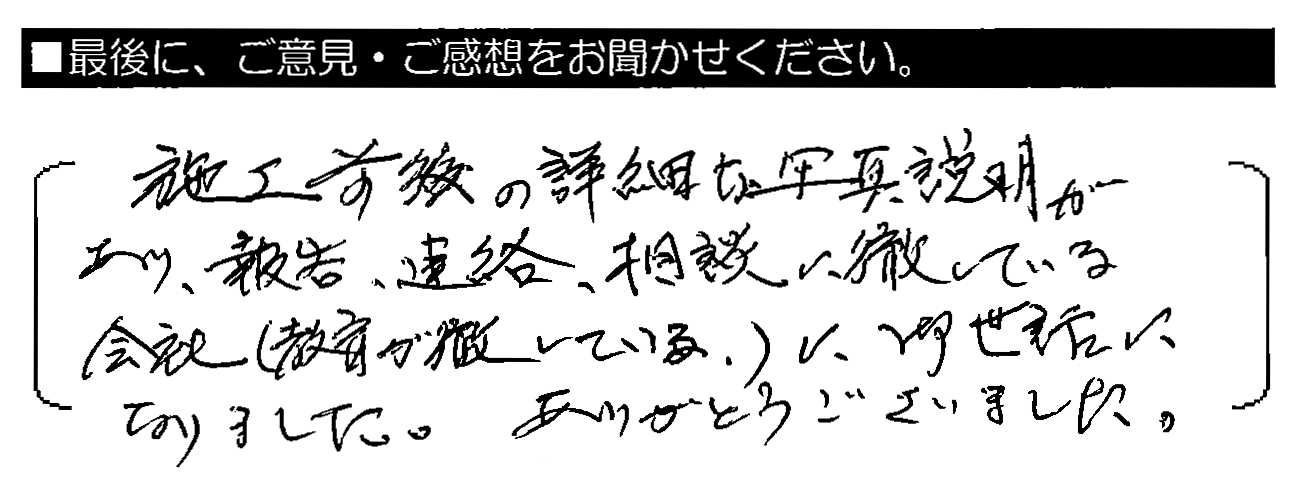 ■最後に、ご意見・ご感想をお聞かせください。
施工前後の詳細な写真説明が
あり、報告、連絡、相談に徹している
会社(教育が徹している。)に、御世話に
なりました。ありがとうございました。